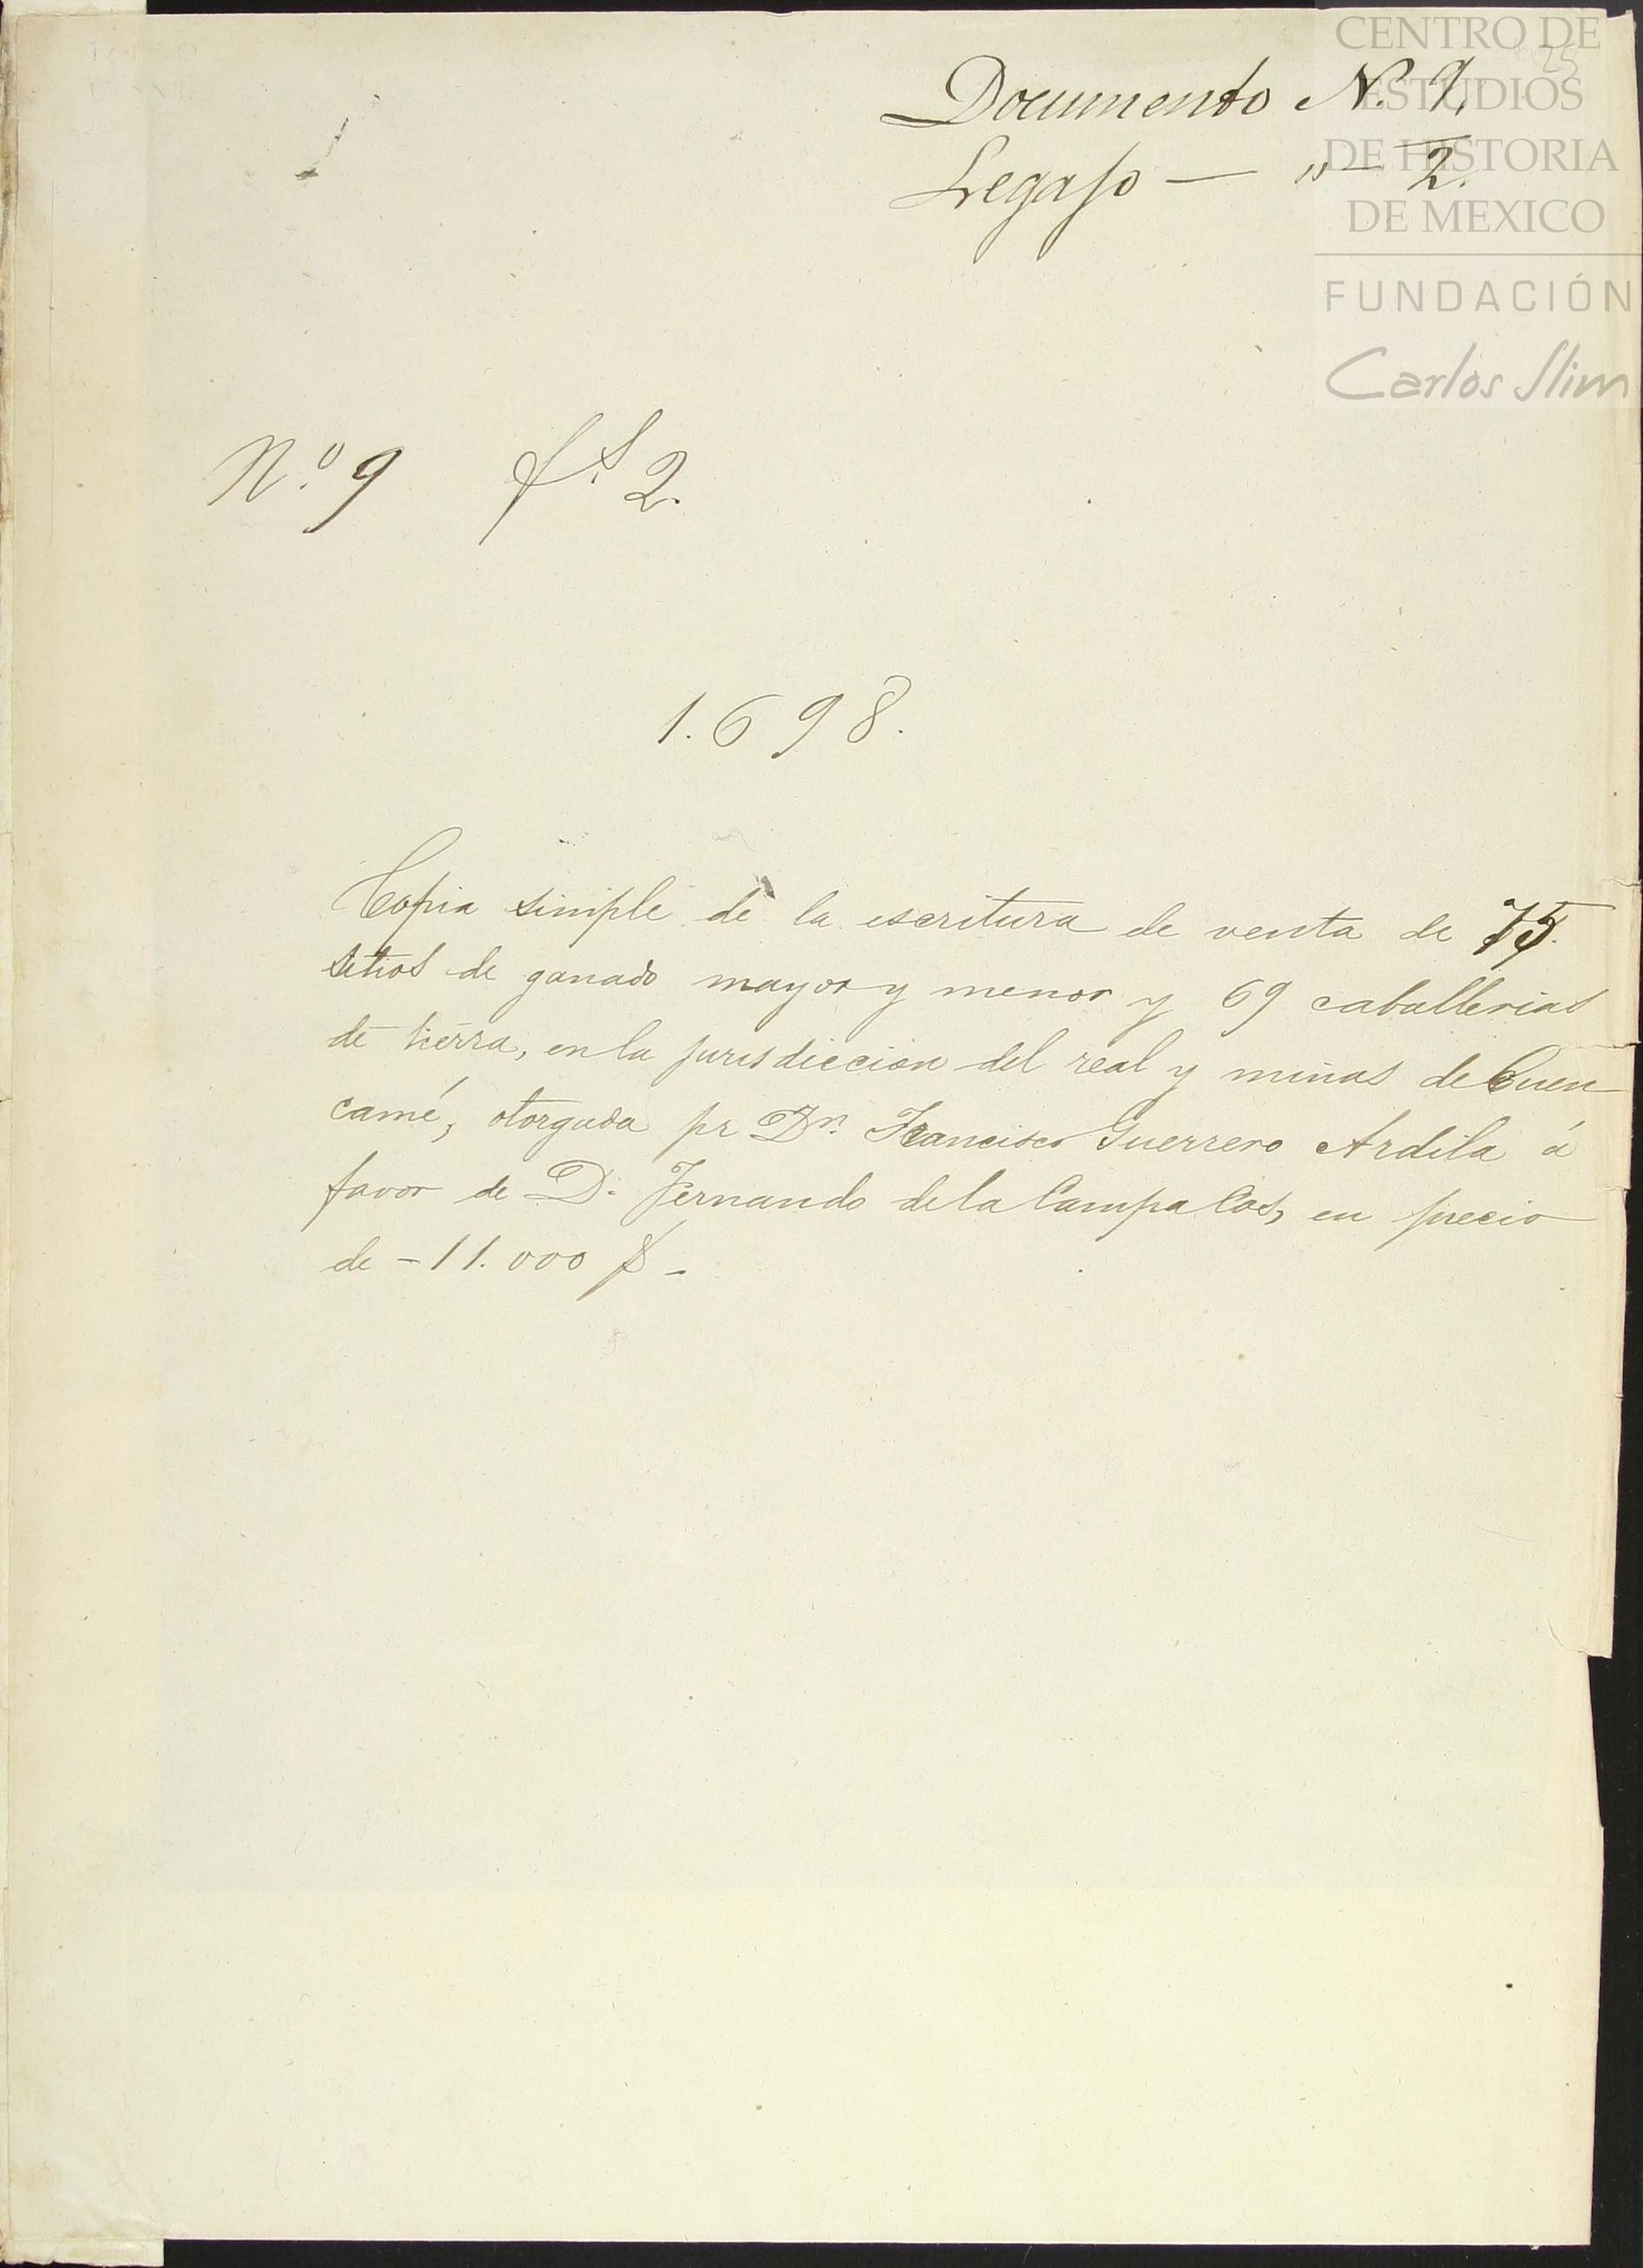 CENTRO DE
ESTUDIOS
DE HISTORIA
DE MEXICO
FUNDACIÓN
Carlos Slim
25
Documento N. 9.
Legajo — " — 2.
N.º 9 f.s 2.
1.698.
Copia simple de la escritura de venta de 75.
sitios de ganado mayor y menor y 69 caballerias
de tierra, en la jurisdiccion del real y minas de Cuen-
camé, otorgada pr Dn. Francisco Guerrero Ardila á
favor de D. Fernando de la Campa Cos, en precio
de - 11.000 $ -